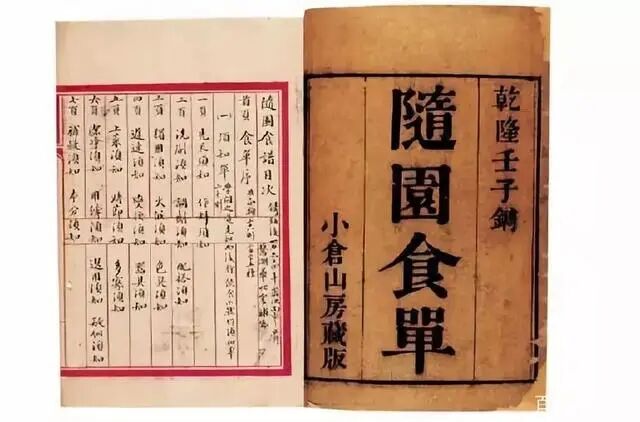 乾隆壬子鐫
隨園食單
小倉山房藏版
隨園食譜目次
首頁 食單序
一 須知單
一頁 先天須知 作料須知
二頁 洗刷須知 調劑須知 配搭須知
三頁 獨用須知 火候須知 色臭須知
四頁 遲速須知 變換須知 器具須知
五頁 上菜須知 時節須知 多寡須知
六頁 潔淨須知 用縴須知 選用須知 疑似須知
七頁 補救須知 本分須知
百